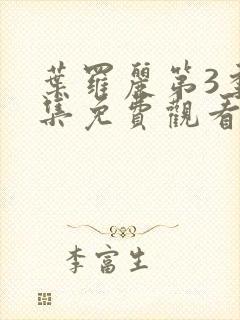 葉羅麗第3季
集免費觀看
李富生